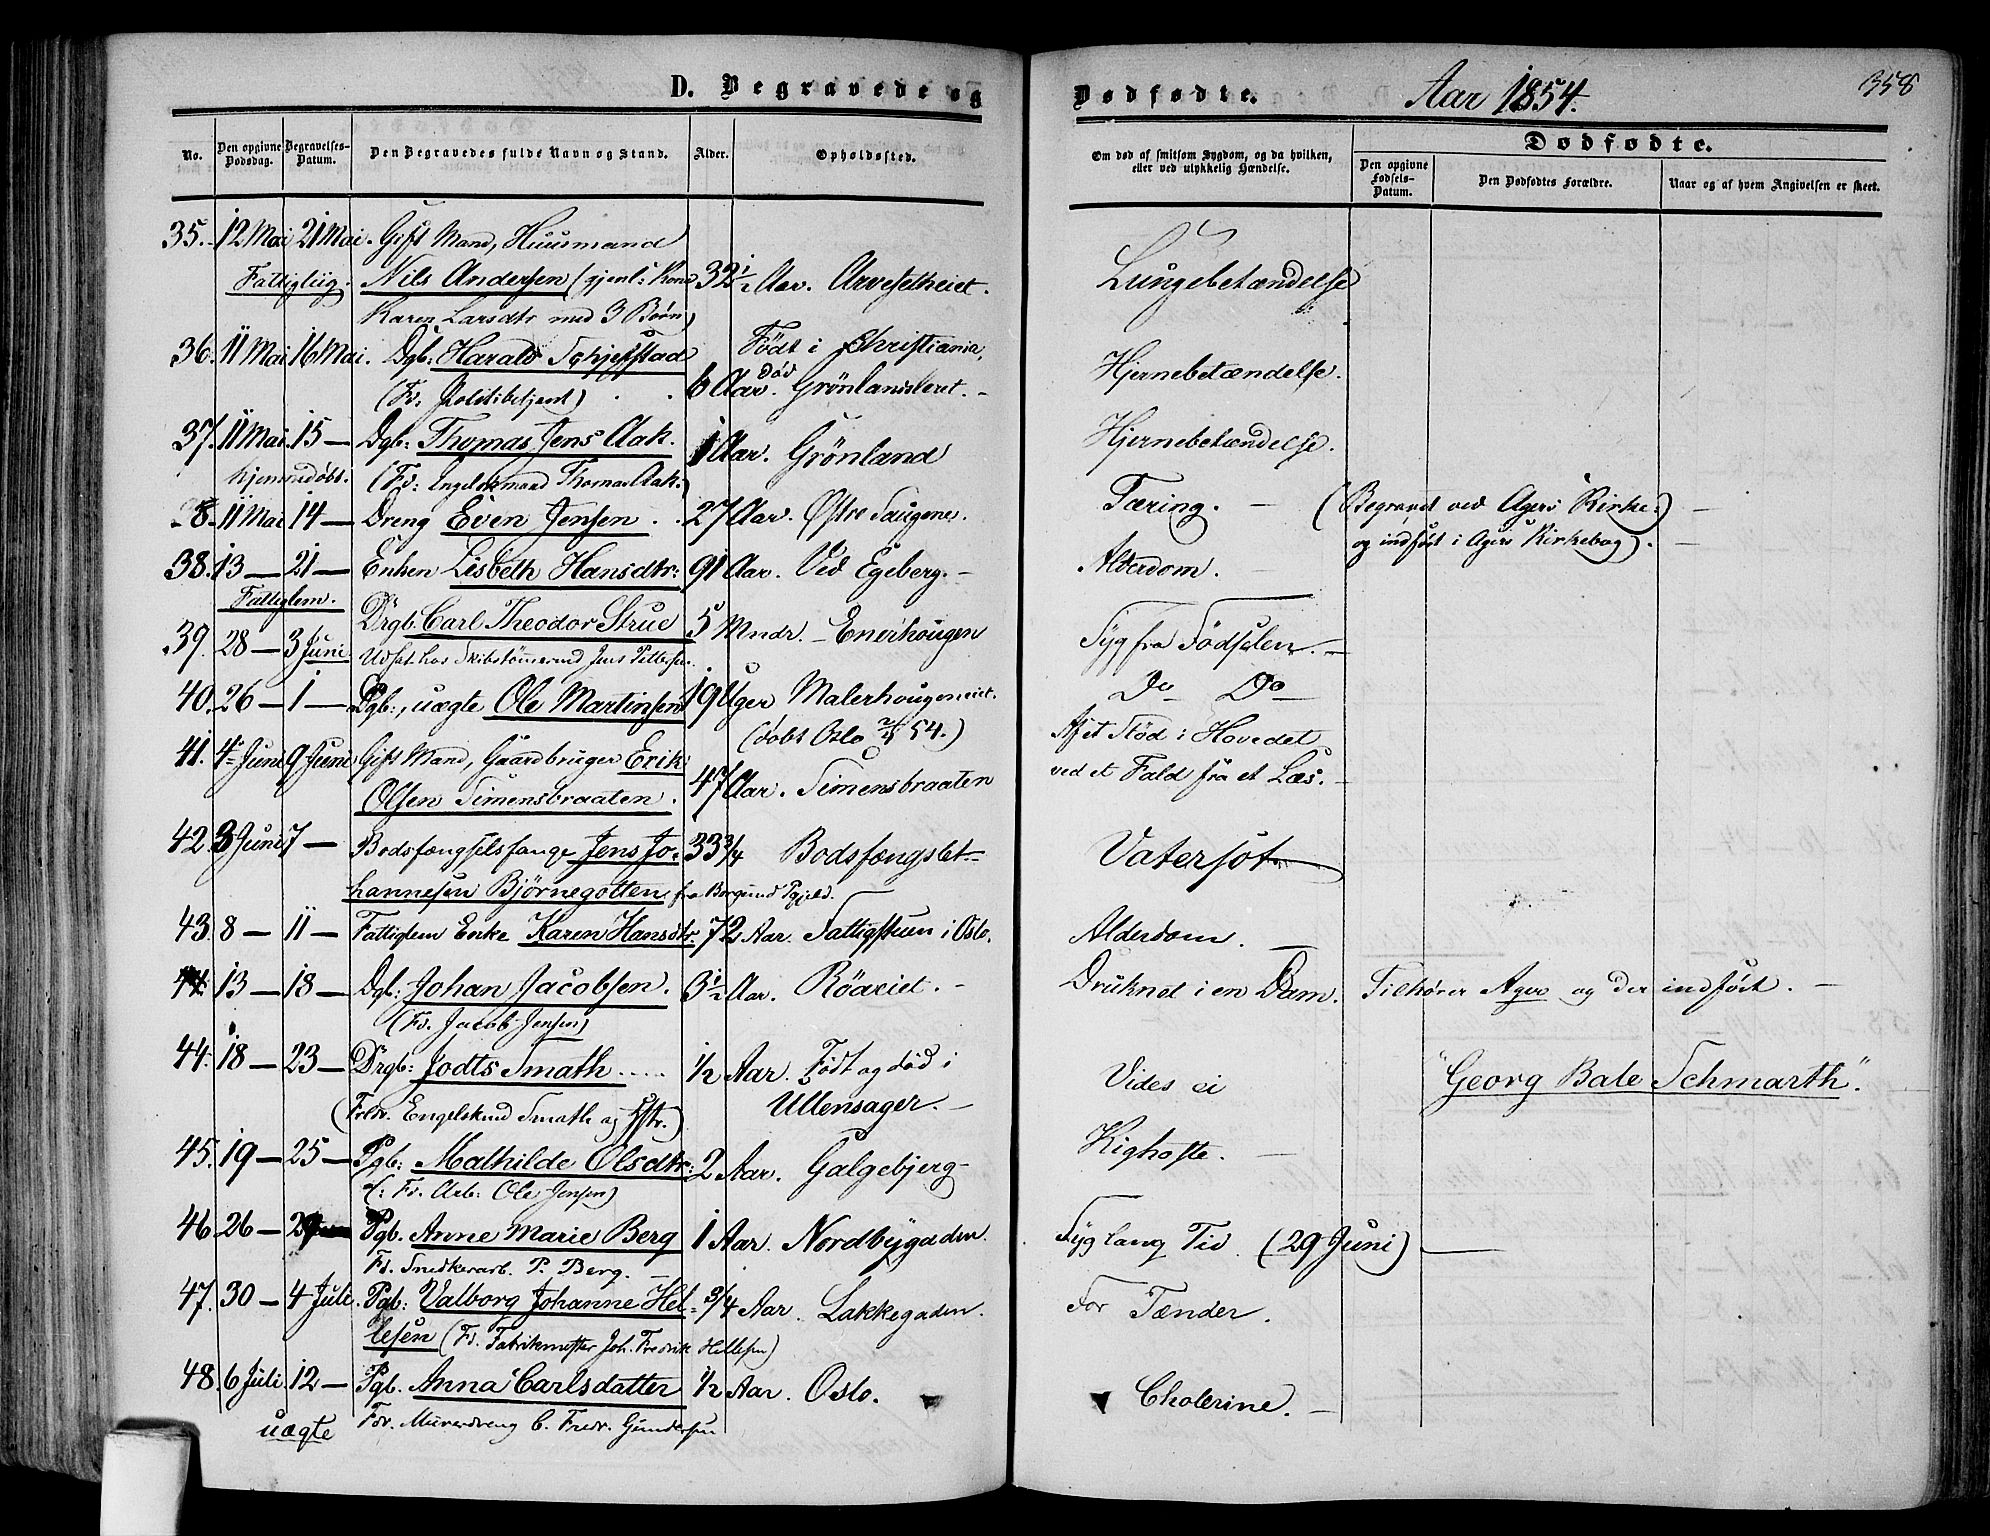 D. Begravede og
Dødfødte.
Aar 1854.
358
No.
Den opgivne Dødsdag.
Begravelses-Datum.
Den Begravedes fulde Navn og Stand.
Alder.
Opholdssted.
Om død af smitsom Sygdom, og da hvilken, eller ved ulykkelig Hændelse.
Dødfødte.
Den opgivne Fødsels-Datum.
Den Dødfødtes Forældre.
Naar og af hvem Angivelsen er skeet.
35. 12 Mai 21 Mai. Gift Mand, Huusmand
Fattigliig. Nils Andersen (gjenl: Kone 32 1/2 Aar. Arveset​heiet. Lungebetændelse
Karen Larsdtr med 3 Børn)
36. 11 Mai 16 Mai. Dgb: Harald Schjefstad Født i Christiania,
(Fd: Politibetjent) 6 Aar. død Grönlandsleret. Hjernebetændelse.
37. 11 Mai. 15 — Dgb: Thomas Jens Aak. 1 Aar. Grönland Hjernebetændelse.
hjemmedøbt. (Fd: Engelskmand Thomas Aak.)
8. 11 Mai 14 — Dreng Even Jensen. 27 Aar. Østre Saugene. Tæring. (Begravet ved Agers Kirke:)
og indført i Agers Kirkebog).
38. 13 — 21 — Enken Lisbeth Hansdtr: 91 Aar. Ved Egeberg. Alderdom.
Fattiglem.
39. 28 — 3 Juni Drgb. Carl Theodor Strue 5 Mndr. Enerhougen Syg fra Födselen.
Udsat hos Skibstømmermd Jens Pettersen.
40. 26 — 1 — Dgb:, uægte Ole Martinsen 19 Uger Malerhougeneiet. Do Do
(døbt Oslo 54.)
41. 4 Juni 9 Juni Gift Mand, Gaardbruger Erik Af et Stöd i Hovedet
Olsen Simensbraaten. 47 Aar. Simensbraaten ved et Fald fra et Læs.
42. 3 Juni 7 — Bodsfængselsfange Jens Jo- 33 3/4 Bodsfængslet Vatersot
hannesen Björnegotten fra Borgund Pgjeld.
43. 8 — 11 — Fattiglem Enke Karen Hansdtr. 72 Aar. Fattigstuen i Oslo. Alderdom.
44. 13 — 18 — Dgb: Johan Jacobsen. 3 1/2 Aar. Röaeiet. Druknet i en Dam. Tilhører Ager og der indført.
(Fd. Jacob Jensen)
44. 18 — 23 — Drgb: Jodts Smath 1/2 Aar. Født og død i Vides ei "Georg Bate Schmarth".
(Frldr. Engelskmd Smath og Hstr.) Ullensager.
45. 19 — 25 — Pgb: Mathilde Olsdtr: 2 Aar. Galgebjerg Kighoste.
(: Fd. Arb: Ole Jensen)
46. 26 — 29 Pgb. Anne Marie Berg 1 Aar. Nordbygaden. Syg lang Tid. (29 Juni)
Fd. Snedkerarb. P. Berg.
47. 30 — 4 Juli. Pgb: Valborg Johanne Hel- 3/4 Aar. Lakkegaden. For Tænder.
lesen (Fd. Fabrikmester Joh. Fredrik Hellesen)
48. 6 Juli 12 — Pgb. Anna Carlsdatter 1/2 Aar. Oslo. Cholerine.
uægte Fdr. Murerdreng C. Fredr. Gundersen